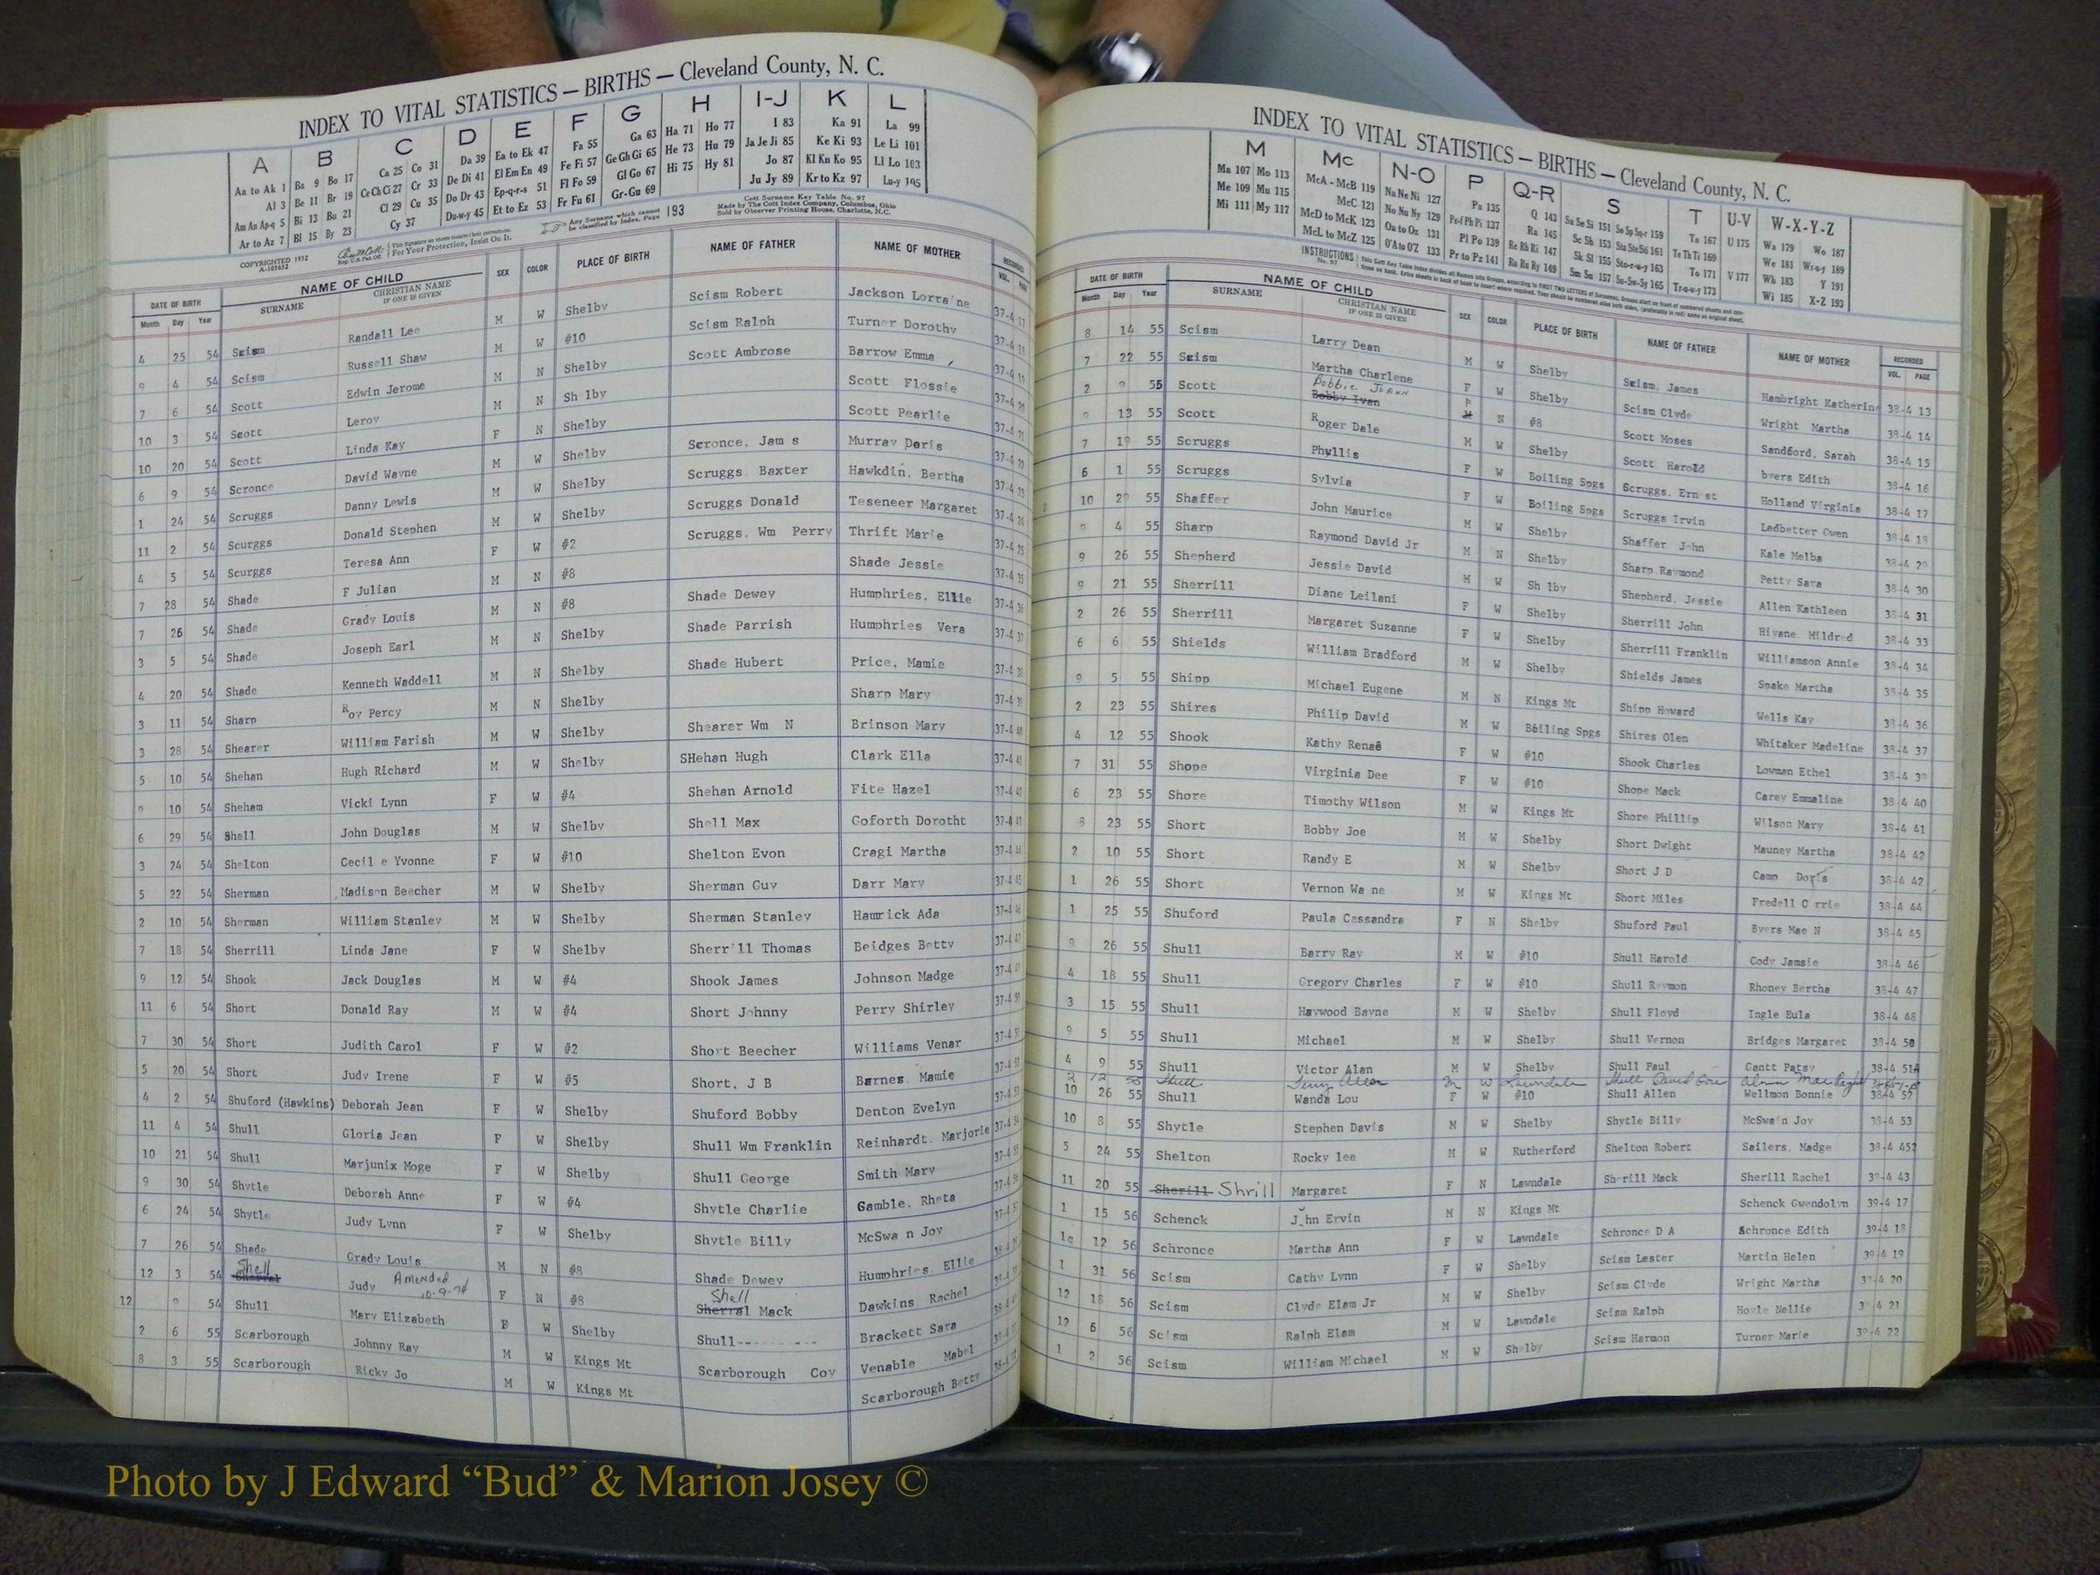 INDEX TO VITAL STATISTICS — BIRTHS — Cleveland County, N. C.
A B C D E F G H I-J K L
Aa to Ak 1 Ba 9 Bo 17 Ca 25 Co 31 Da 39 Ea to Ek 47 Fa 55 Ga 63 Ha 71 Ho 77 I 83 Ka 91 La 99
Al 3 Be 11 Br 19 Ce Ch Ci 27 Cr 33 De Di 41 El Em En 49 Fe Fi 57 Ge Gh Gi 65 He 73 Hu 79 Ja Je Ji 85 Ke Ki 93 Le Li 101
Am An Ap-q 5 Bi 13 Bu 21 Cl 29 Cu 35 Do Dr 43 Ep-q-r-s 51 Fl Fo 59 Gl Go 67 Hi 75 Hy 81 Jo 87 Kl Kn Ko 95 Ll Lo 103
Ar to Az 7 Bl 15 By 23 Cy 37 Du-w-y 45 Et to Ez 53 Fr Fu 61 Gr-Gu 69 Ju Jy 89 Kr to Kz 97 Lu-y 105
COPYRIGHTED 1932
For Your Protection, Insist On It.
Any Surname which cannot be classified by Index, Page 193
Cott Surname Key Table No. 97
Made by The Cott Index Company, Columbus, Ohio
Sold by Observer Printing House, Charlotte, N.C.
DATE OF BIRTH NAME OF CHILD SEX COLOR PLACE OF BIRTH NAME OF FATHER NAME OF MOTHER RECORDED
Month Day Year SURNAME CHRISTIAN NAME IF ONE IS GIVEN VOL. PAGE
4 25 54 Scism Randall Lee M W Shelby Scism Robert Jackson Lorraine 37-4 17
9 4 54 Scism Russell Shaw M W #10 Scism Ralph Turner Dorothy 37-4 18
7 6 54 Scott Edwin Jerome M N Shelby Scott Ambrose Barrow Emma 37-4 19
10 3 54 Scott Leroy M N Sh lby Scott Flossie 37-4 20
10 20 54 Scott Linda Kay F N Shelby Scott Pearlie 37-4 21
6 9 54 Scronce David Wayne M W Shelby Scronce. Jam s Murray Doris 37-4
1 24 54 Scruggs Danny Lewis M W Shelby Scruggs. Baxter Hawkdin. Bertha 37-4
11 2 54 Scurggs Donald Stephen M W Shelby Scruggs Donald Teseneer Margaret 37-4
4 5 54 Scurggs Teresa Ann F W #2 Scruggs. Wm Perry Thrift Marie 37-4
7 28 54 Shade F Julian M N #8 Shade Jessie 37-4
7 26 54 Shade Grady Louis M N #8 Shade Dewey Humphries. Ellie 37-4
3 5 54 Shade Joseph Earl M N Shelby Shade Parrish Humphries Vera 37-4
4 20 54 Shade Kenneth Waddell M N Shelby Shade Hubert Price, Mamie 37-4
3 11 54 Sharp Roy Percy M N Shelby Sharp Mary 37-4
3 28 54 Shearer William Farish M W Shelby Shearer Wm N Brinson Mary 37-4 40
5 10 54 Shehan Hugh Richard M W Shelby SHehan Hugh Clark Ella 37-4 41
9 10 54 Sheham Vicki Lynn F W #4 Shehan Arnold Fite Hazel 37-4
6 29 54 Shell John Douglas M W Shelby Shell Max Goforth Dorotht 37-4
3 24 54 Shelton Cecil e Yvonne F W #10 Shelton Evon Cragi Martha 37-4
5 22 54 Sherman Madison Beecher M W Shelby Sherman Guy Darr Mary 37-4 45
2 10 54 Sherman William Stanley M W Shelby Sherman Stanley Hamrick Ada 37-4 46
7 18 54 Sherrill Linda Jane F W Shelby Sherrill Thomas Beidges Betty 37-4 47
9 12 54 Shook Jack Douglas M W #4 Shook James Johnson Madge 37-4
11 6 54 Short Donald Ray M W #4 Short Johnny Perry Shirley 37-4 50
7 30 54 Short Judith Carol F W #2 Short Beecher Williams Venar 37-4 51
5 20 54 Short Judy Irene F W #5 Short, J B Barnes. Mamie 37-4 52
4 2 54 Shuford (Hawkins) Deborah Jean F W Shelby Shuford Bobby Denton Evelyn 37-4 53
11 4 54 Shull Gloria Jean F W Shelby Shull Wm Franklin Reinhardt. Marjorie 37-4 54
10 21 54 Shull Marjunix Moge F W Shelby Shull George Smith Mary 37-4
9 30 54 Shytle Deborah Anne F W #4 Shytle Charlie Gamble. Rheta 37-4
6 24 54 Shytle Judy Lynn F W Shelby Shytle Billy McSwa n Joy 37-4
7 26 54 Shade Grady Louis M N #8 Shade Dewey Humphries. Ellie
12 3 54 Sherral Shell Judy Amended 10-9-74 F N #8 Sherral Shell Mack Dawkins Rachel
12 9 54 Shull Mary Elizabeth F W Shelby Shull Brackett Sara
2 6 55 Scarborough Johnny Ray M W Kings Mt Scarborough Coy Venable Mabel
8 3 55 Scarborough Ricky Jo M W Kings Mt Scarborough Betty 38-4 12
INDEX TO VITAL STATISTICS — BIRTHS — Cleveland County, N. C.
M Mc N-O P Q-R S T U-V W-X-Y-Z
Ma 107 Mo 113 McA - McB 119 Na Ne Ni 127 Pa 135 Q 143 Sa Se Si 151 So Sp Sq-r 159 Ta 167 U 175 Wa 179 Wo 187
Me 109 Mu 115 McC 121 No Nu Ny 129 Pe-f Ph Pi 137 Ra 145 Sc Sh 153 Sta Ste Sti 161 Te Th Ti 169 We 181 Wr-u-y 189
Mi 111 My 117 McD to McK 123 Oa to Oz 131 Pl Po 139 Re Rh Ri 147 Sk Sl 155 Sto-r-u-y 163 To 171 V 177 Wh 183 Y 191
McL to McZ 125 O'A to O'Z 133 Pr to Pz 141 Ro Ru Ry 149 Sm Sn 157 Su-Sw-Sy 165 Tr-u-w-y 173 Wi 185 X-Z 193
INSTRUCTIONS No. 97
DATE OF BIRTH NAME OF CHILD SEX COLOR PLACE OF BIRTH NAME OF FATHER NAME OF MOTHER RECORDED
Month Day Year SURNAME CHRISTIAN NAME IF ONE IS GIVEN VOL. PAGE
8 14 55 Scism Larry Dean M W Shelby Scism. James Hambright Katherine 38-4 13
7 22 55 Scism Martha Charlene F W Shelby Scism Clyde Wright Martha 38-4 14
2 9 55 Scott Bobby Ivan Bobbie Jo Ann F N #8 Scott Moses Sandford. Sarah 38-4 15
9 13 55 Scott Roger Dale M W Shelby Scott Harold byers Edith 38-4 16
7 19 55 Scruggs Phyllis F W Boiling Spgs Scruggs. Ern st Holland Virginia 38-4 17
6 1 55 Scruggs Sylvia F W Boiling Spgs Scruggs Irvin Ledbetter Gwen 38-4 18
10 29 55 Shaffer John Maurice M W Shelby Shaffer John Kale Melba 38-4 29
9 4 55 Sharp Raymond David Jr M N Shelby Sharp Raymond Petty Sara 38-4 30
9 26 55 Shepherd Jessie David M W Sh lby Shepherd. Jessie Allen Kathleen 38-4 31
9 21 55 Sherrill Diane Leilani F W Shelby Sherrill John Hivane Mildred 38-4 33
2 26 55 Sherrill Margaret Suzanne F W Shelby Sherrill Franklin Williamson Annie 38-4 34
6 6 55 Shields William Bradford M W Shelby Shields James Spake Martha 38-4 35
9 5 55 Shipp Michael Eugene M N Kings Mt Shipp Howard Wells Kay 38-4 36
2 23 55 Shires Philip David M W Boiling Spgs Shires Olen Whitaker Madeline 38-4 37
4 12 55 Shook Kathy Renae F W #10 Shook Charles Lowman Ethel 38-4 39
7 31 55 Shope Virginia Dee F W #10 Shope Mack Carey Emmaline 38-4 40
6 23 55 Shore Timothy Wilson M W Kings Mt Shore Phillip Wilson Mary 38-4 41
8 23 55 Short Bobby Joe M W Shelby Short Dwight Mauney Martha 38-4 42
2 10 55 Short Randy E M W Shelby Short J D Camp Doris 38-4 42
1 26 55 Short Vernon Wa ne M W Kings Mt Short Miles Fredell C rrie 38-4 44
1 25 55 Shuford Paula Cassandra F N Shelby Shuford Paul Byers Mae N 38-4 45
9 26 55 Shull Barry Ray M W #10 Shull Harold Cody Jamsie 38-4 46
4 18 55 Shull Gregory Charles F W #10 Shull Raymon Rhoney Bertha 38-4 47
3 15 55 Shull Haywood Bayne M W Shelby Shull Floyd Ingle Eula 38-4 48
9 5 55 Shull Michael M W Shelby Shull Vernon Bridges Margaret 38-4 50
4 9 55 Shull Victor Alan M W Shelby Shull Paul Gantt Patsy 38-4 51A
2 12 55 Shull Terry Allen M W Lawndale Shull David Alma Mae
10 26 55 Shull Wanda Lou F W #10 Shull Allen Wellmon Bonnie 38-4 52
10 8 55 Shytle Stephen Davis M W Shelby Shytle Billy McSwain Joy 38-4 53
5 24 55 Shelton Rocky lee M W Rutherford Shelton Robert Sailers. Madge 38-4 452
11 20 55 Sherill Shrill Margaret F N Lawndale Sherill Mack Sherill Rachel 39-4 43
1 15 56 Schenck John Ervin M N Kings Mt Schenck Gwendolyn 39-4 17
10 12 56 Schronce Martha Ann F W Lawndale Schronce D A Schronce Edith 39-4 18
1 31 56 Scism Cathy Lynn F W Shelby Scism Lester Martin Helen 39-4 19
12 18 56 Scism Clyde Elam Jr M W Shelby Scism Clyde Wright Martha 39-4 20
12 6 56 Scism Ralph Elam M W Lawndale Scism Ralph Hoyle Nellie 39-4 21
1 2 56 Scism William Michael M W Shelby Scism Harmon Turner Marie 39-4 22
Photo by J Edward “Bud” & Marion Josey ©